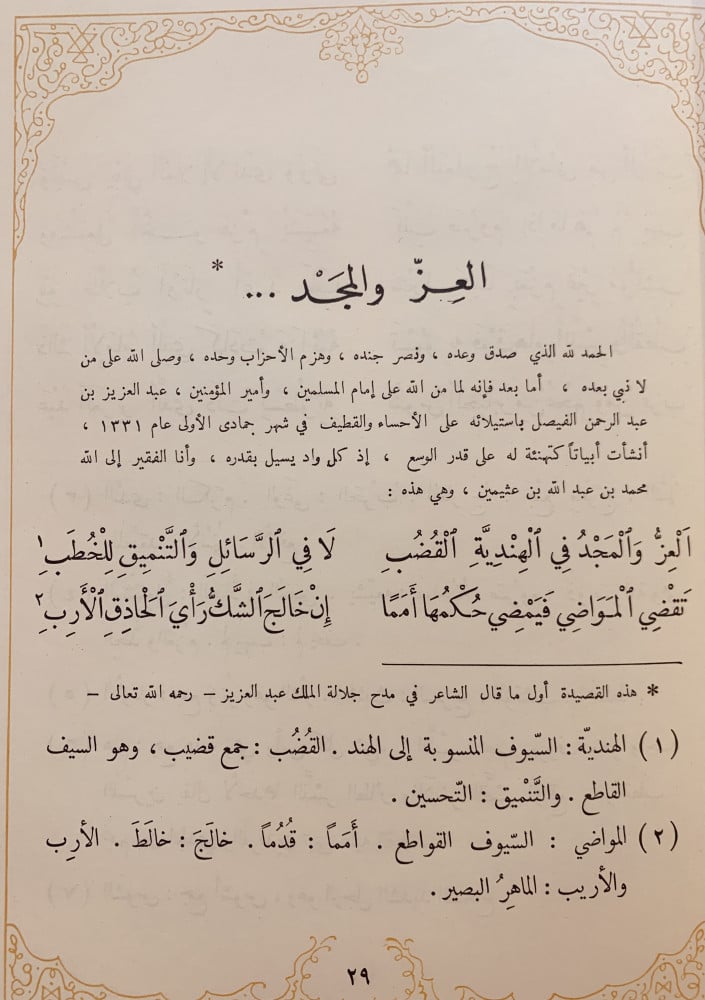 العِزّ والمَجَدْ ... *
الحمد لله الذي صدق وعده ، ونصر جنده ، وهزم الأحزاب وحده ، وصلى الله على من
لا نبي بعده ، أما بعد فإنه لما من الله على إمام المسلمين ، وأمير المؤمنين ، عبد العزيز بن
عبد الرحمن الفيصل باستيلائه على الأحساء والقطيف في شهر جمادى الأولى عام ١٣٣١ ،
أنشأت أبياتاً كتهنئة له على قدر الوسع ، إذ كل واد يسيل بقدره ، وأنا الفقير إلى الله
محمد بن عبد الله بن عثيمين ، وهي هذه :
اَلْعِزُّ وَالْمَجْدُ فِي الْهِنْدِيَّةِ الْقُضُبِ لَا فِي الرَّسَائِلِ وَالتَّنْمِيقِ لِلْخُطَبِ ١
تَقْضِي الْمَوَاضِي فَيَمْضِي حُكْمُهَا أَمَمًا إِنْ خَالَجَ الشَّكُّ رَأْيَ الْحَاذِقِ الْأَرِبِ ٢
* هذه القصيدة أول ما قال الشاعر في مدح جلالة الملك عبد العزيز – رحمه الله تعالى –
(١) الهنديّة : السّيوف المنسوبة إلى الهند . القُضُب : جمع قضيب ، وهو السيف
القاطع . والتَّنْميق : التّحسين .
(٢) المواضي : السّيوف القواطع . أَمَماً : قُدُماً . خالَجَ : خالَطَ . الأرِب
والأريب : الماهِرُ البصير .
٢٩